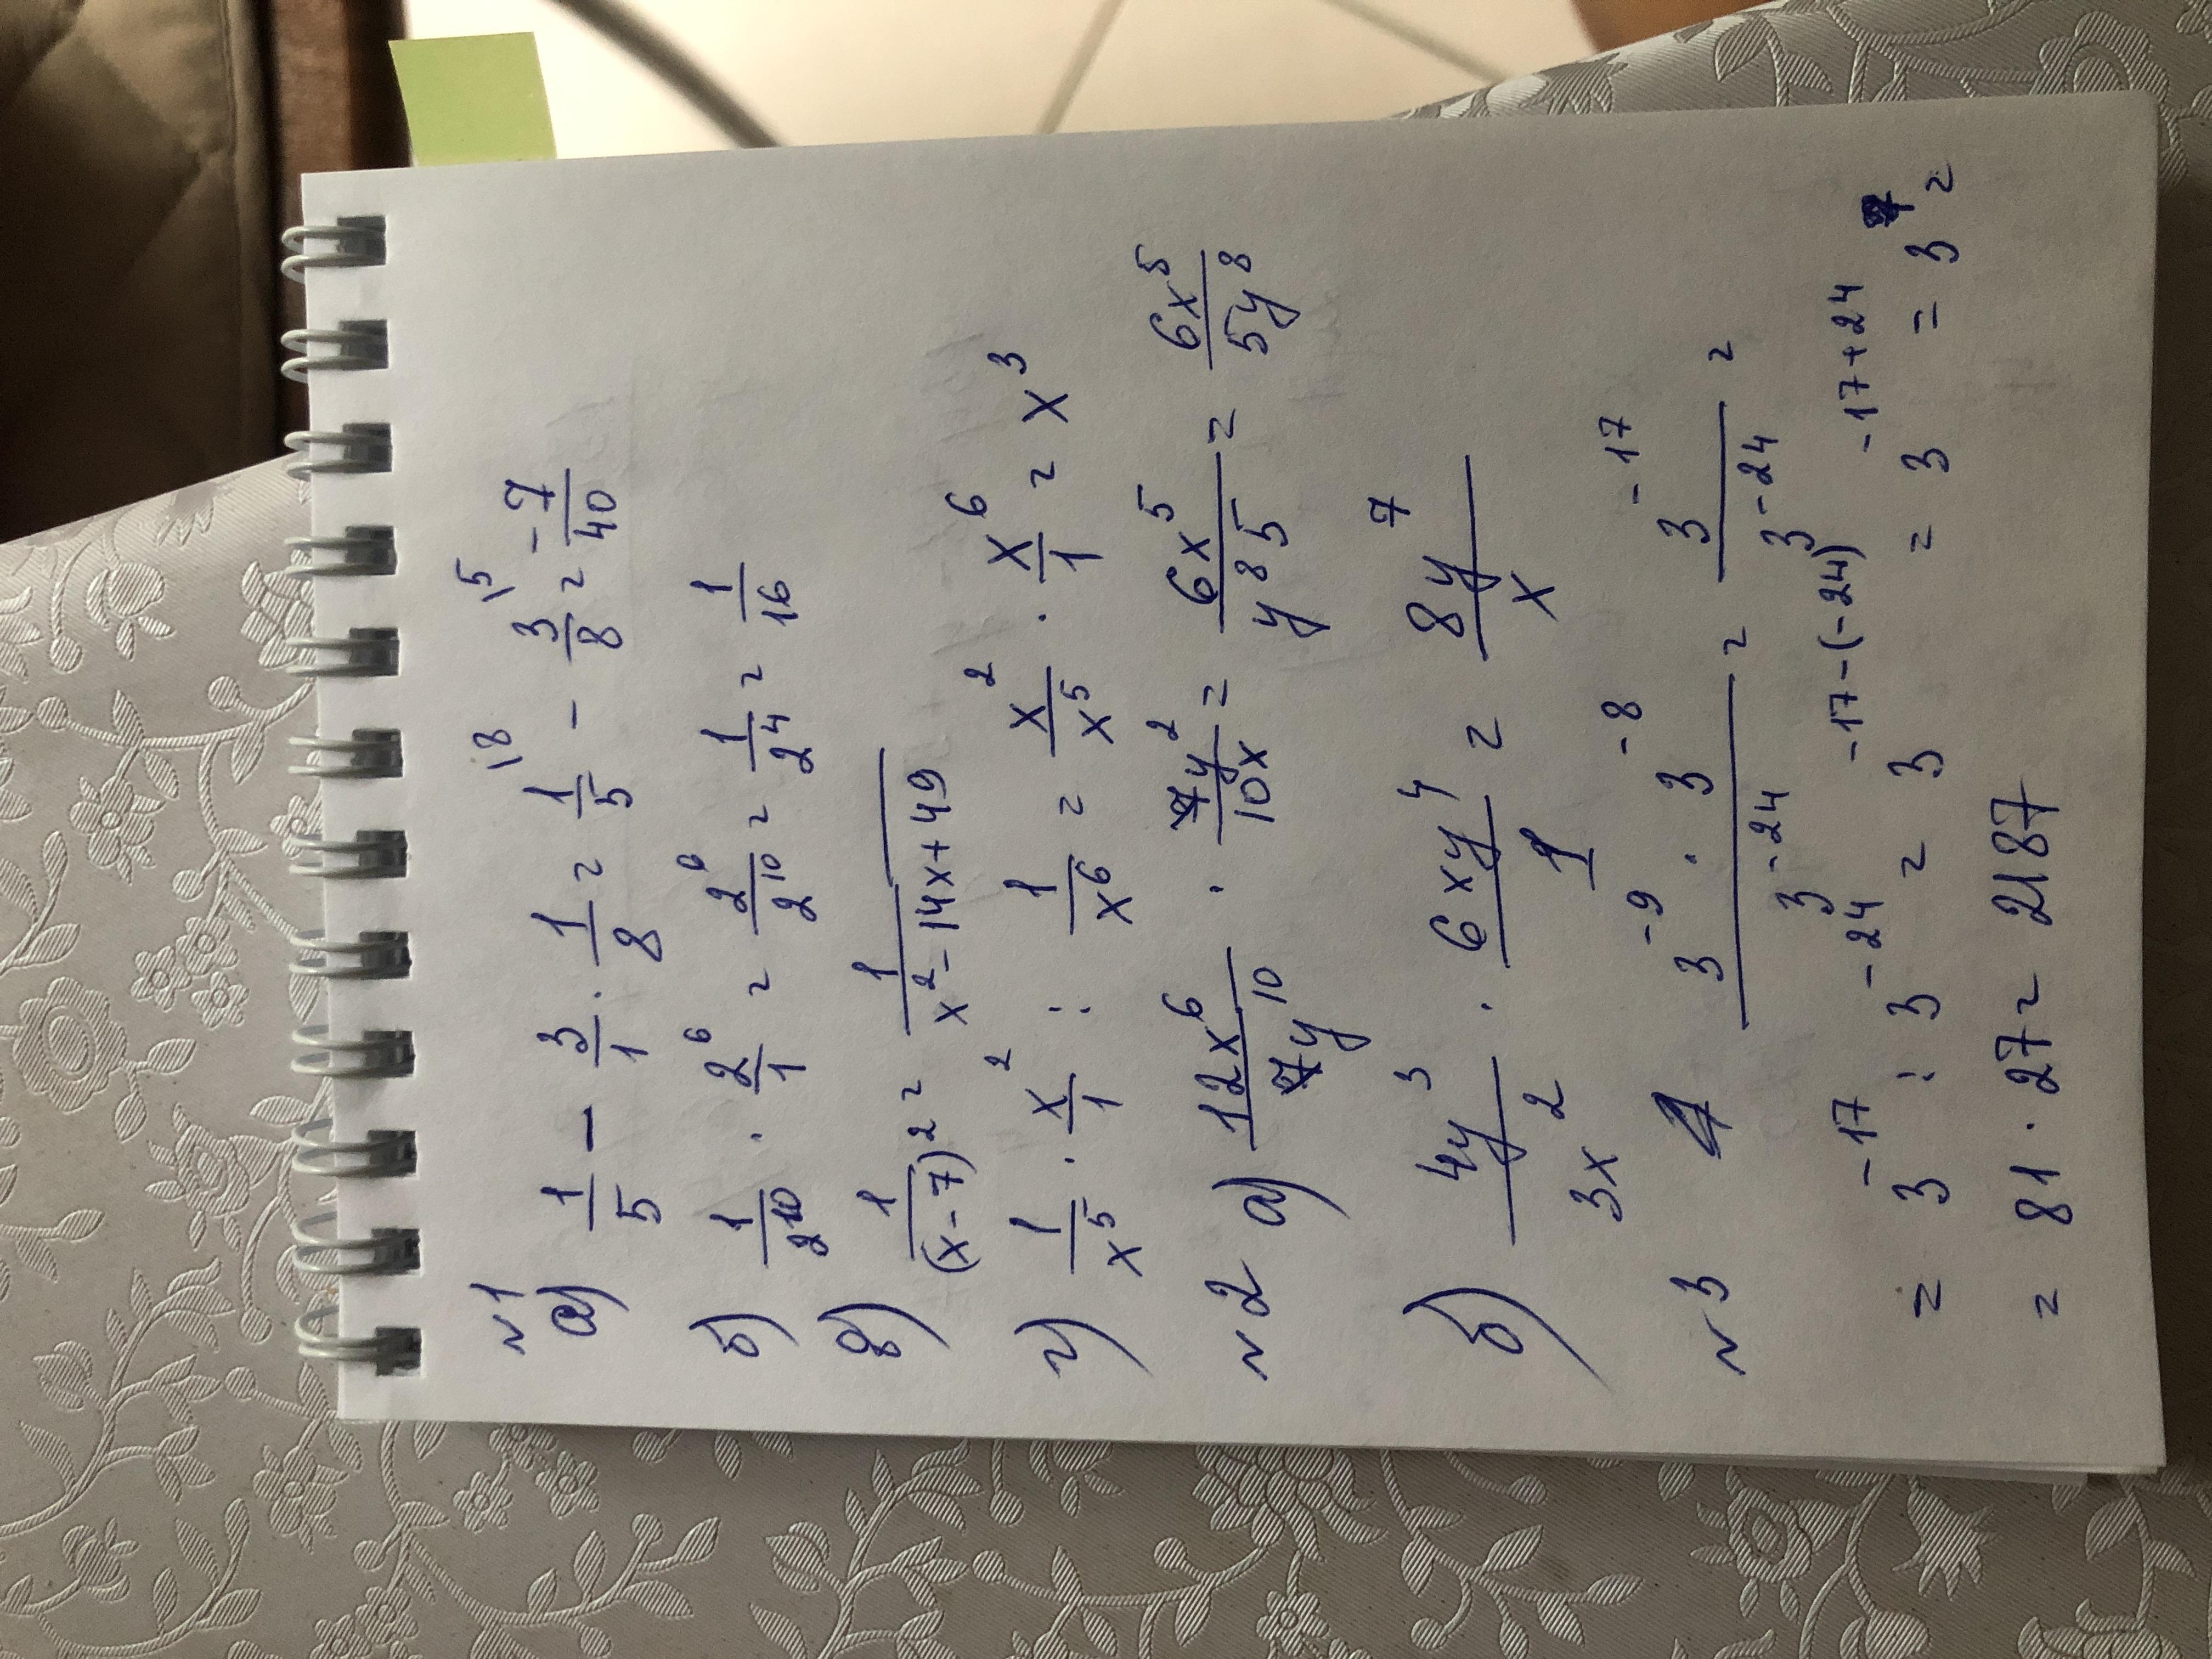 N1
а) 1/5 - 3/1 · 1/8 = 1/5 \8 - 3/8 \5 = -7/40
б) 1/2^10 · 2^6/1 = 2^6/2^10 = 1/2^4 = 1/16
в) 1/(x-7)^2 = 1/(x^2-14x+49)
г) 1/x^5 · x^2/1 : 1/x^6 = x^2/x^5 · x^6/1 = x^3
N2 а) 12x^6/7y^10 · 7y^2/10x = 6x^5/y^8 5 = 6x^5/5y^8
б) 4y^3/3x^2 · 6xy^4/1 = 8y^7/x
N3 3^-9 · 3^-8/3^-24 = 3^-17/3^-24 =
= 3^-17 : 3^-24 = 3^-17-(-24) = 3^-17+24 = 3^7 =
= 81 · 27 = 2187